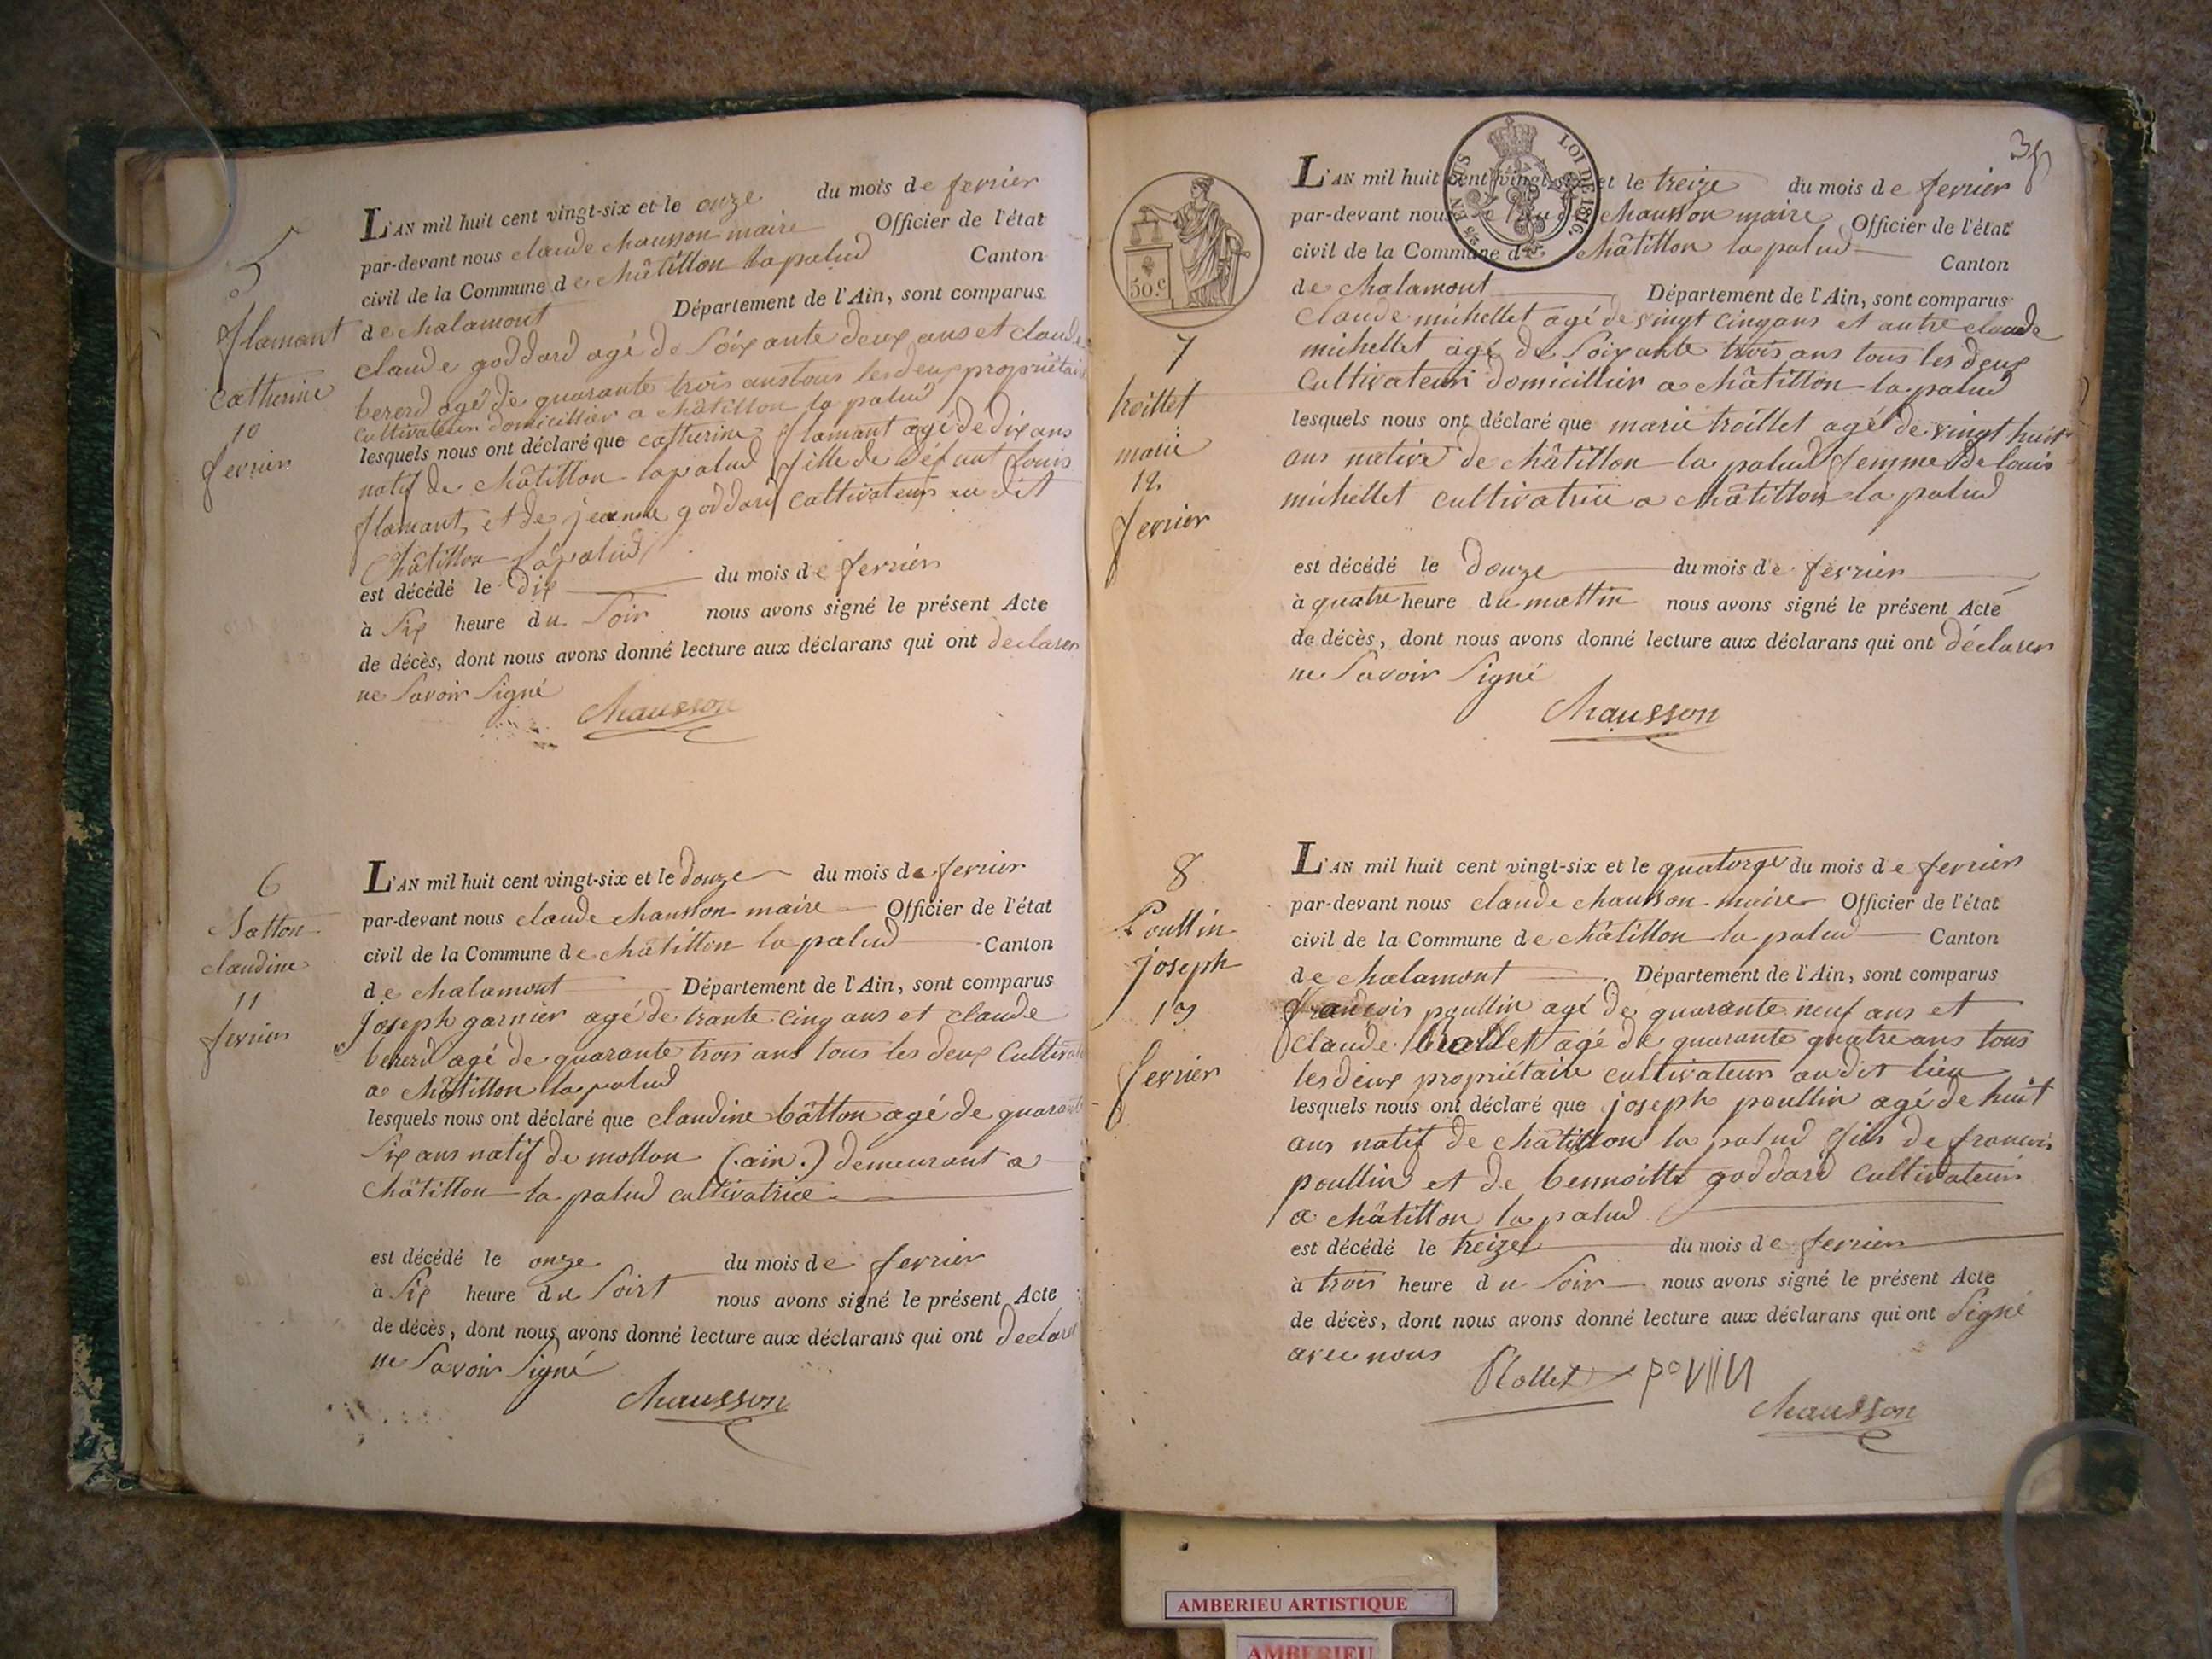 5
flamant
Catherine
10
fevrier
L'AN mil huit cent vingt-six et le onze du mois de fevrier
par-devant nous claude chausson maire Officier de l'état
civil de la Commune de châtillon la palud Canton
de chalamont Département de l'Ain, sont comparus
claude goddard agé de soixante deux ans et claude
bererd agé de quarante trois ans tous les deux propriétaire
cultivateur domicillier a châtillon la palud
lesquels nous ont déclaré que catherine flamant agé de dix ans
natif de châtillon la palud fille de défunt louis
flamant et de jeanne goddard cultivateur au dit
Châtillon lapalud
est décédé le dix du mois de fevrier
à six heure du soir nous avons signé le présent Acte
de décès, dont nous avons donné lecture aux déclarans qui ont declarer
ne savoir signé
Chausson
6
batton
claudine
11
fevrier
L'AN mil huit cent vingt-six et le douze du mois de fevrier
par-devant nous claude chausson maire Officier de l'état
civil de la Commune de châtillon la palud Canton
de chalamont Département de l'Ain, sont comparus
joseph garnier agé de trante cinq ans et claude
bererd agé de quarante trois ans tous les deux
a châtillon la palud
lesquels nous ont déclaré que claudine bâtton agé de quarante
six ans natif de mollon (ain.) demeurant a
châtillon la palud cultivatrice
est décédé le onze du mois de fevrier
à six heure du soirt nous avons signé le présent Acte
de décès, dont nous avons donné lecture aux déclarans qui ont
ne savoir signé
Chausson
35
EN SUS
LOI DE 1816.
50.c
7
troillet
marie
12
fevrier
L'AN mil huit cent vingt-six et le treize du mois de fevrier
par-devant nous claude chausson maire Officier de l'état
civil de la Commune de châtillon la palud Canton
de chalamont Département de l'Ain, sont comparus
claude michellet agé de vingt cinq ans et autre claude
michellet agé de soixante trois ans tous les deux
cultivateur domicillier a châtillon la palud
lesquels nous ont déclaré que marie troillet agé de vingt huit
ans native de châtillon la palud femme de louis
michellet cultivatrice a châtillon la palud
est décédé le douze du mois de fevrier
à quatre heure du mattin nous avons signé le présent Acte
de décès, dont nous avons donné lecture aux déclarans qui ont déclarer
ne savoir signé
Chausson
8
Poullin
joseph
13
fevrier
L'AN mil huit cent vingt-six et le quatorze du mois de fevrier
par-devant nous claude chausson maire Officier de l'état
civil de la Commune de châtillon la palud Canton
de chalamont Département de l'Ain, sont comparus
francois poullin agé de quarante neuf ans et
claude agé de quarante quatre ans tous
les deux propriétaire cultivateur au dit lieu
lesquels nous ont déclaré que joseph poullin agé de huit
ans natif de châtillon la palud fils de francois
poullin et de bennoitte goddard cultivateur
a châtillon la palud
est décédé le treize du mois de fevrier
à trois heure du soir nous avons signé le présent Acte
de décès, dont nous avons donné lecture aux déclarans qui ont signé
avec nous
Chausson
AMBERIEU ARTISTIQUE
AMBERIEU